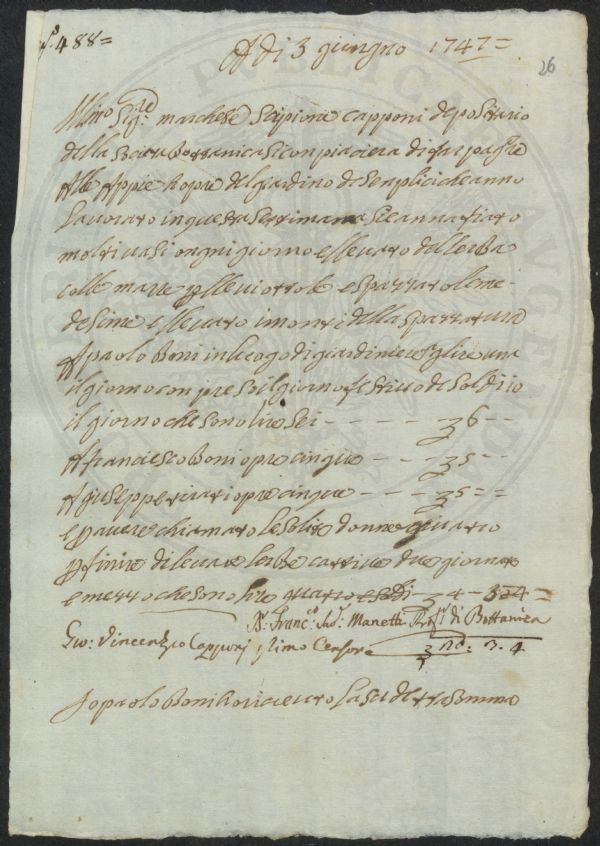 n.º 488=
A di 3 giungno 1747=
26
Illmo Sig:re marchese Scipione capponi depositario
della Socita Bottanica si conpiacera di far pagare
Alle Appie hopre del giardino de Senplici che anno
Lavorato in questa settimana si e annafiato
molti vasi ongni giorno e llevato dellerba
colle mane p lle viottole e spazzato le me-
desime e llevato i monti della spazzatura
A paolo Boni in luogo di giardiniere p lire una
il giorno conpreso il giorno festivo de Soldi 10
il giorno che sono lire sei - - - - - - £ 6 - -
A franciesco Boni opre cinque - - - £ 5 - -
A giuseppe opre cinque - - - £ 5 = =
e p avere chiamato le solite donne quatro
p finire di levare lerbe cattive due giornate
e mezzo che sono lire quatro e soldi - £ 4 - 3 4 =
D:r Franc:o Sav:o Manetti Prof:e di Bottanica
Gio: Vincenzio Capponi primo Censore £ : 3. 4
Io paolo Boni ho riceuto la sudetta somma